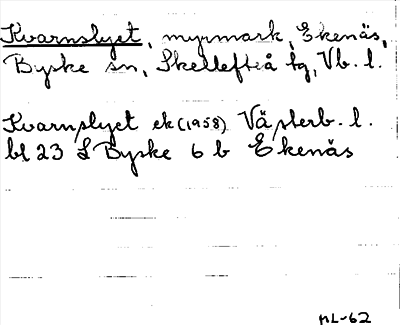 Kvarnslyet, myrmark, Ekenäs,
Byske sn, Skellefteå tg, Vb. l.
Kvarnslyet ek (1958) Västerb. l.
bl 23 L Byske 6 b Ekenäs
ML-62